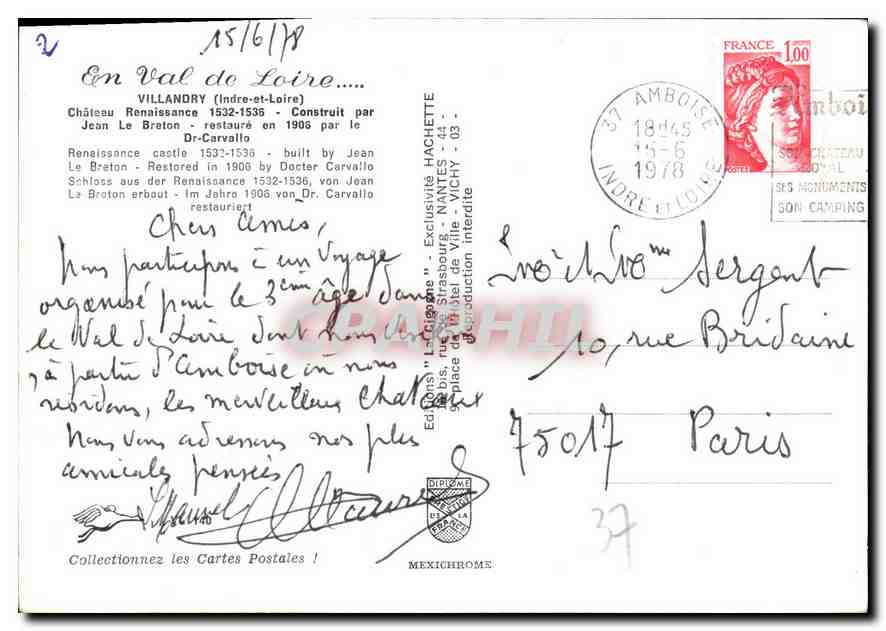 2
15/6/78
En Val de Loire.....
VILLANDRY (Indre-et-Loire)
Château Renaissance 1532-1536 - Construit par
Jean Le Breton - restauré en 1906 par le
Dr-Carvallo
Renaissance castle 1532-1536 - built by Jean
Le Breton - Restored in 1906 by Docter Carvallo
Schloss aus der Renaissance 1532-1536, von Jean
Le Breton erbout - Im Jahre 1906 von Dr. Carvallo
restauriert
Chers amis,
Nous participons à un Voyage
organisé pour le 3ème âge dans
le Val de Loire dont nous
à partir d'Amboise où nous
résidons, les merveilleux Chateaux
Nous vous adressons nos plus
amicales pensées
Collectionnez les Cartes Postales !
Editions "La Cigogne" - Exclusivité HACHETTE
bis, rue de Strasbourg - NANTES - 44 -
9, place de l'Hôtel de Ville - VICHY - 03 -
Reproduction interdite
DIPLOME
PRESTIGE
DE LA
FRANCE
MEXICHROME
CPARHIL
FRANCE 1,00
POSTES
37 AMBOISE
18H45
15-6
1978
INDRE ET LOIRE
Amboi
SON CHATEAU
ROYAL
SES MONUMENTS
SON CAMPING
Mr et Mme Sergent
10, rue Bridaine
75017 Paris
37